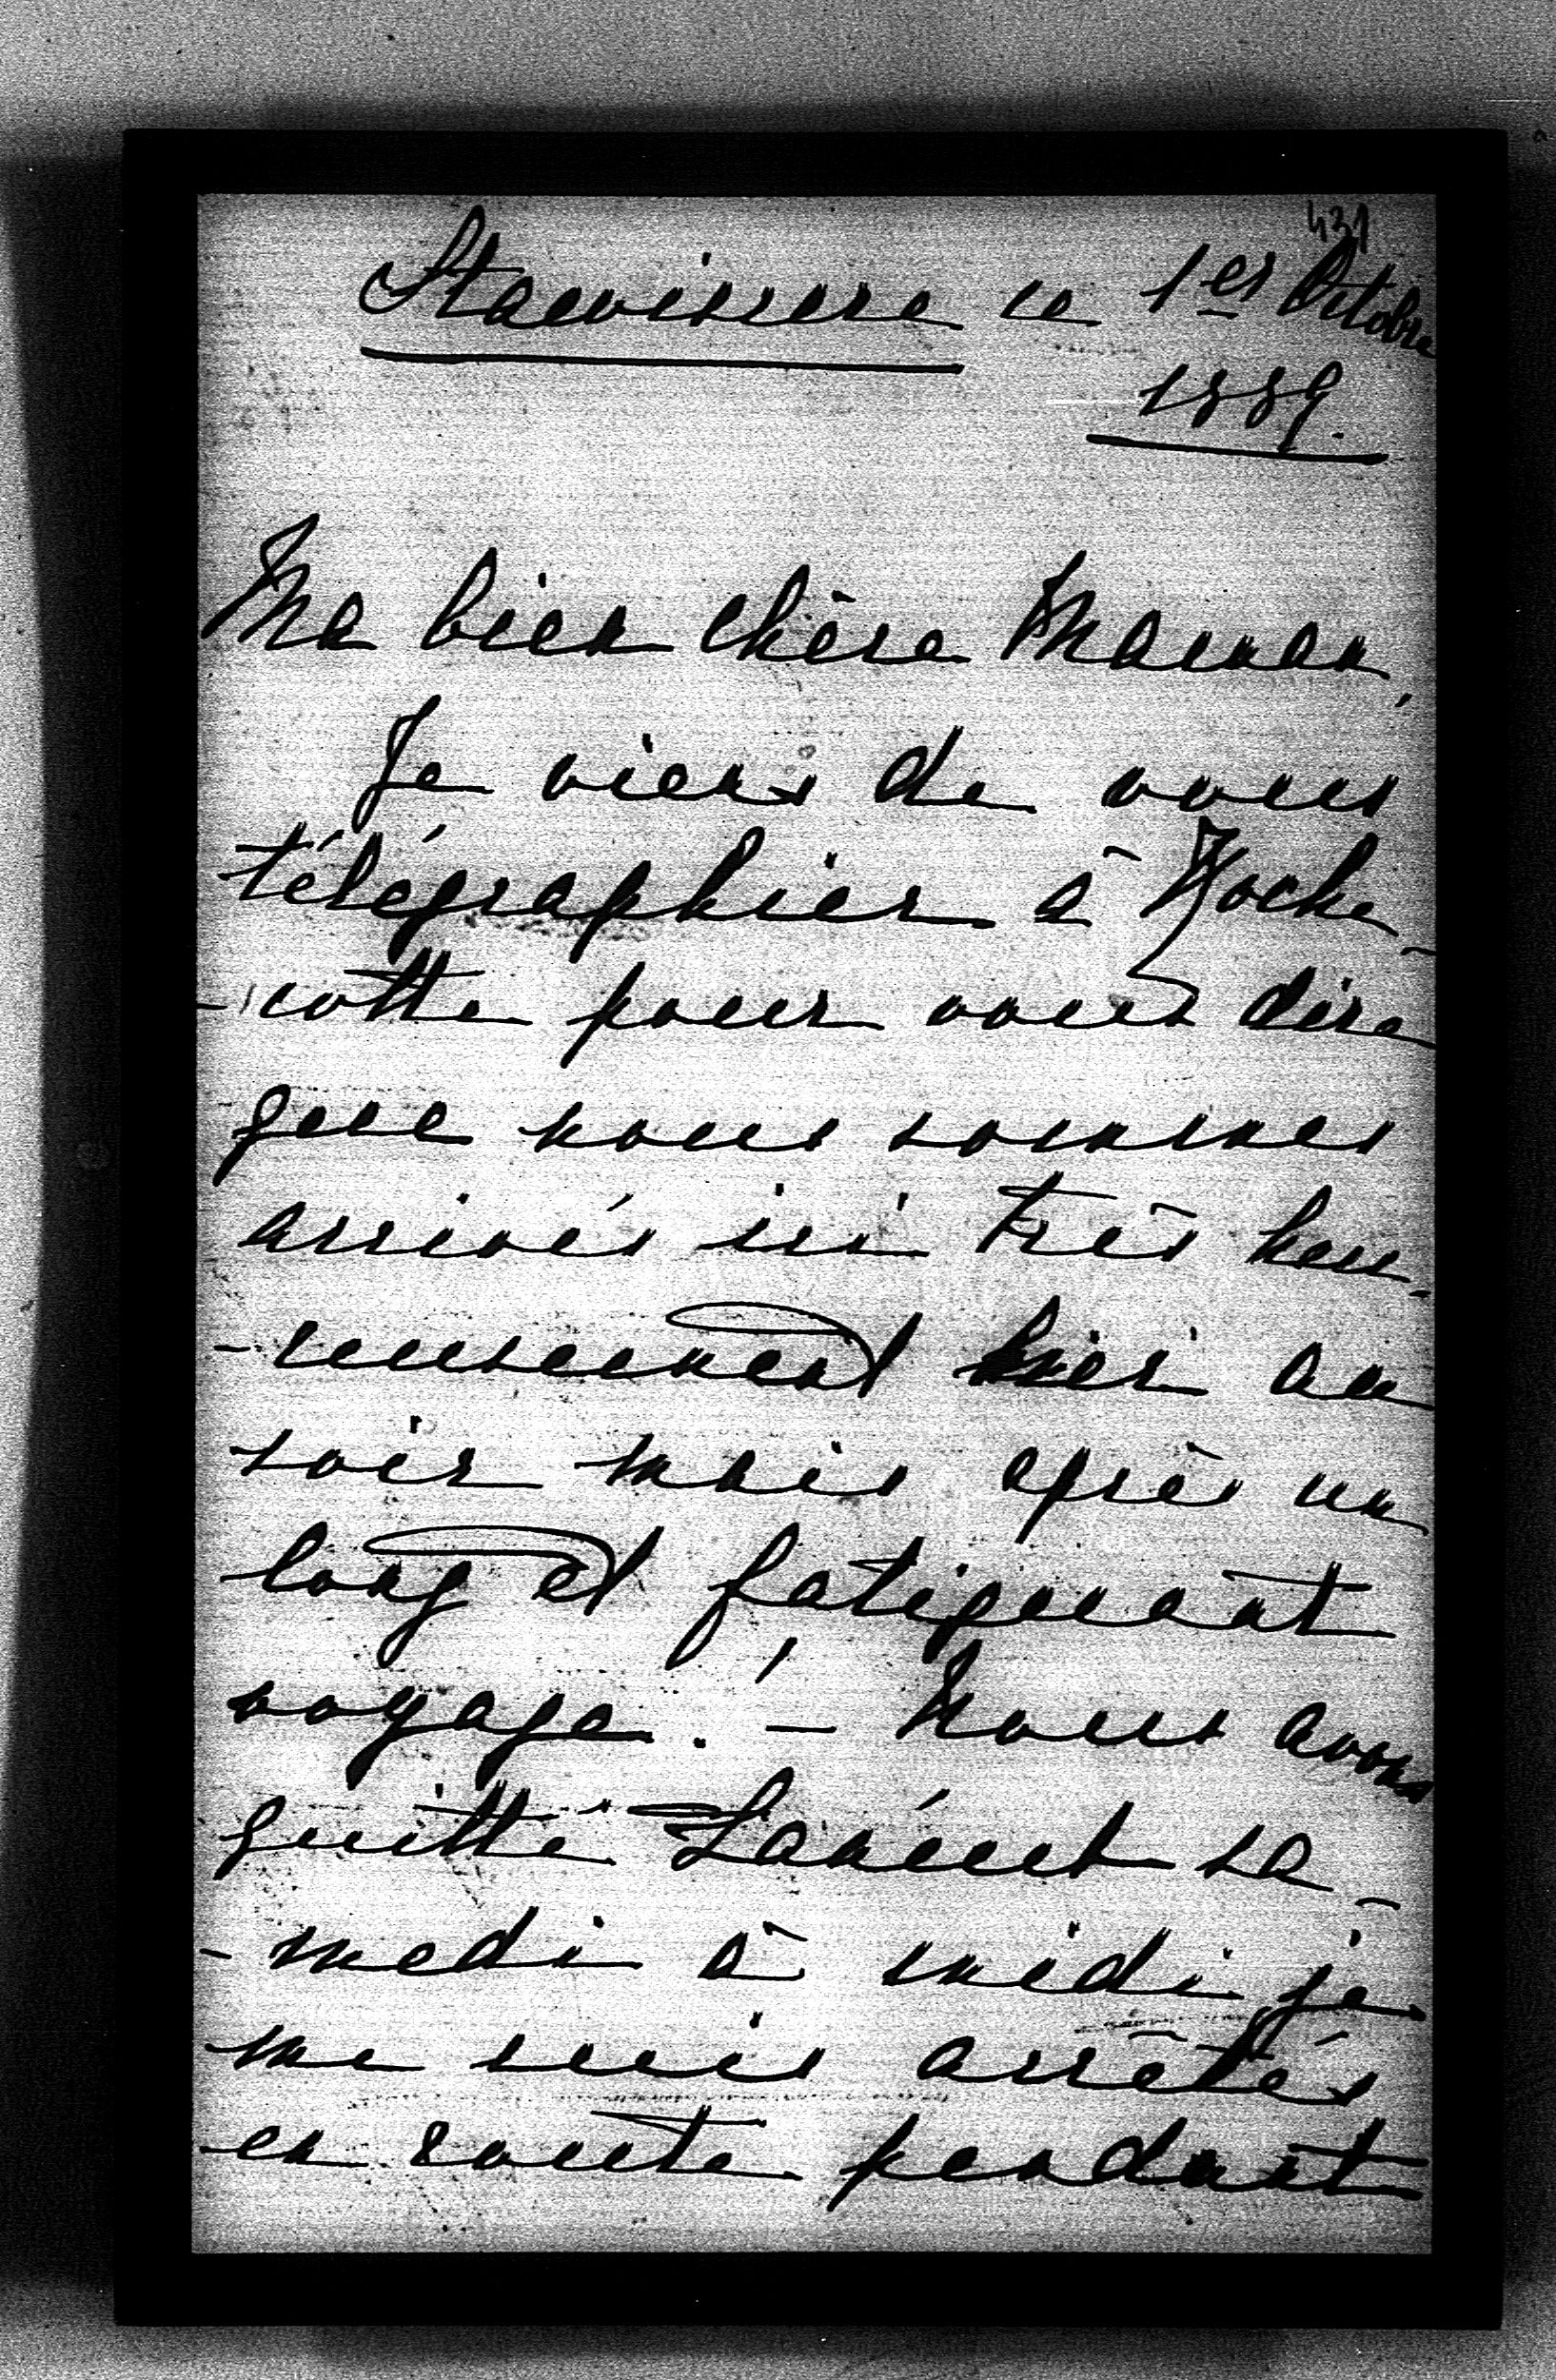 431
Stawissere ce 1er Octobre
1889.
Ma bien chère Maman,
Je viens de vous
télégraphier à Roche-
-cotte pour vous dire
que nous sommes
arrivés ici très heu-
-reusement hier au
soir mais après un
long et fatiguant
voyage. ! — Nous avons
quitté Lancut sa-
-medi à midi je
me suis arrêtés
en route pendant